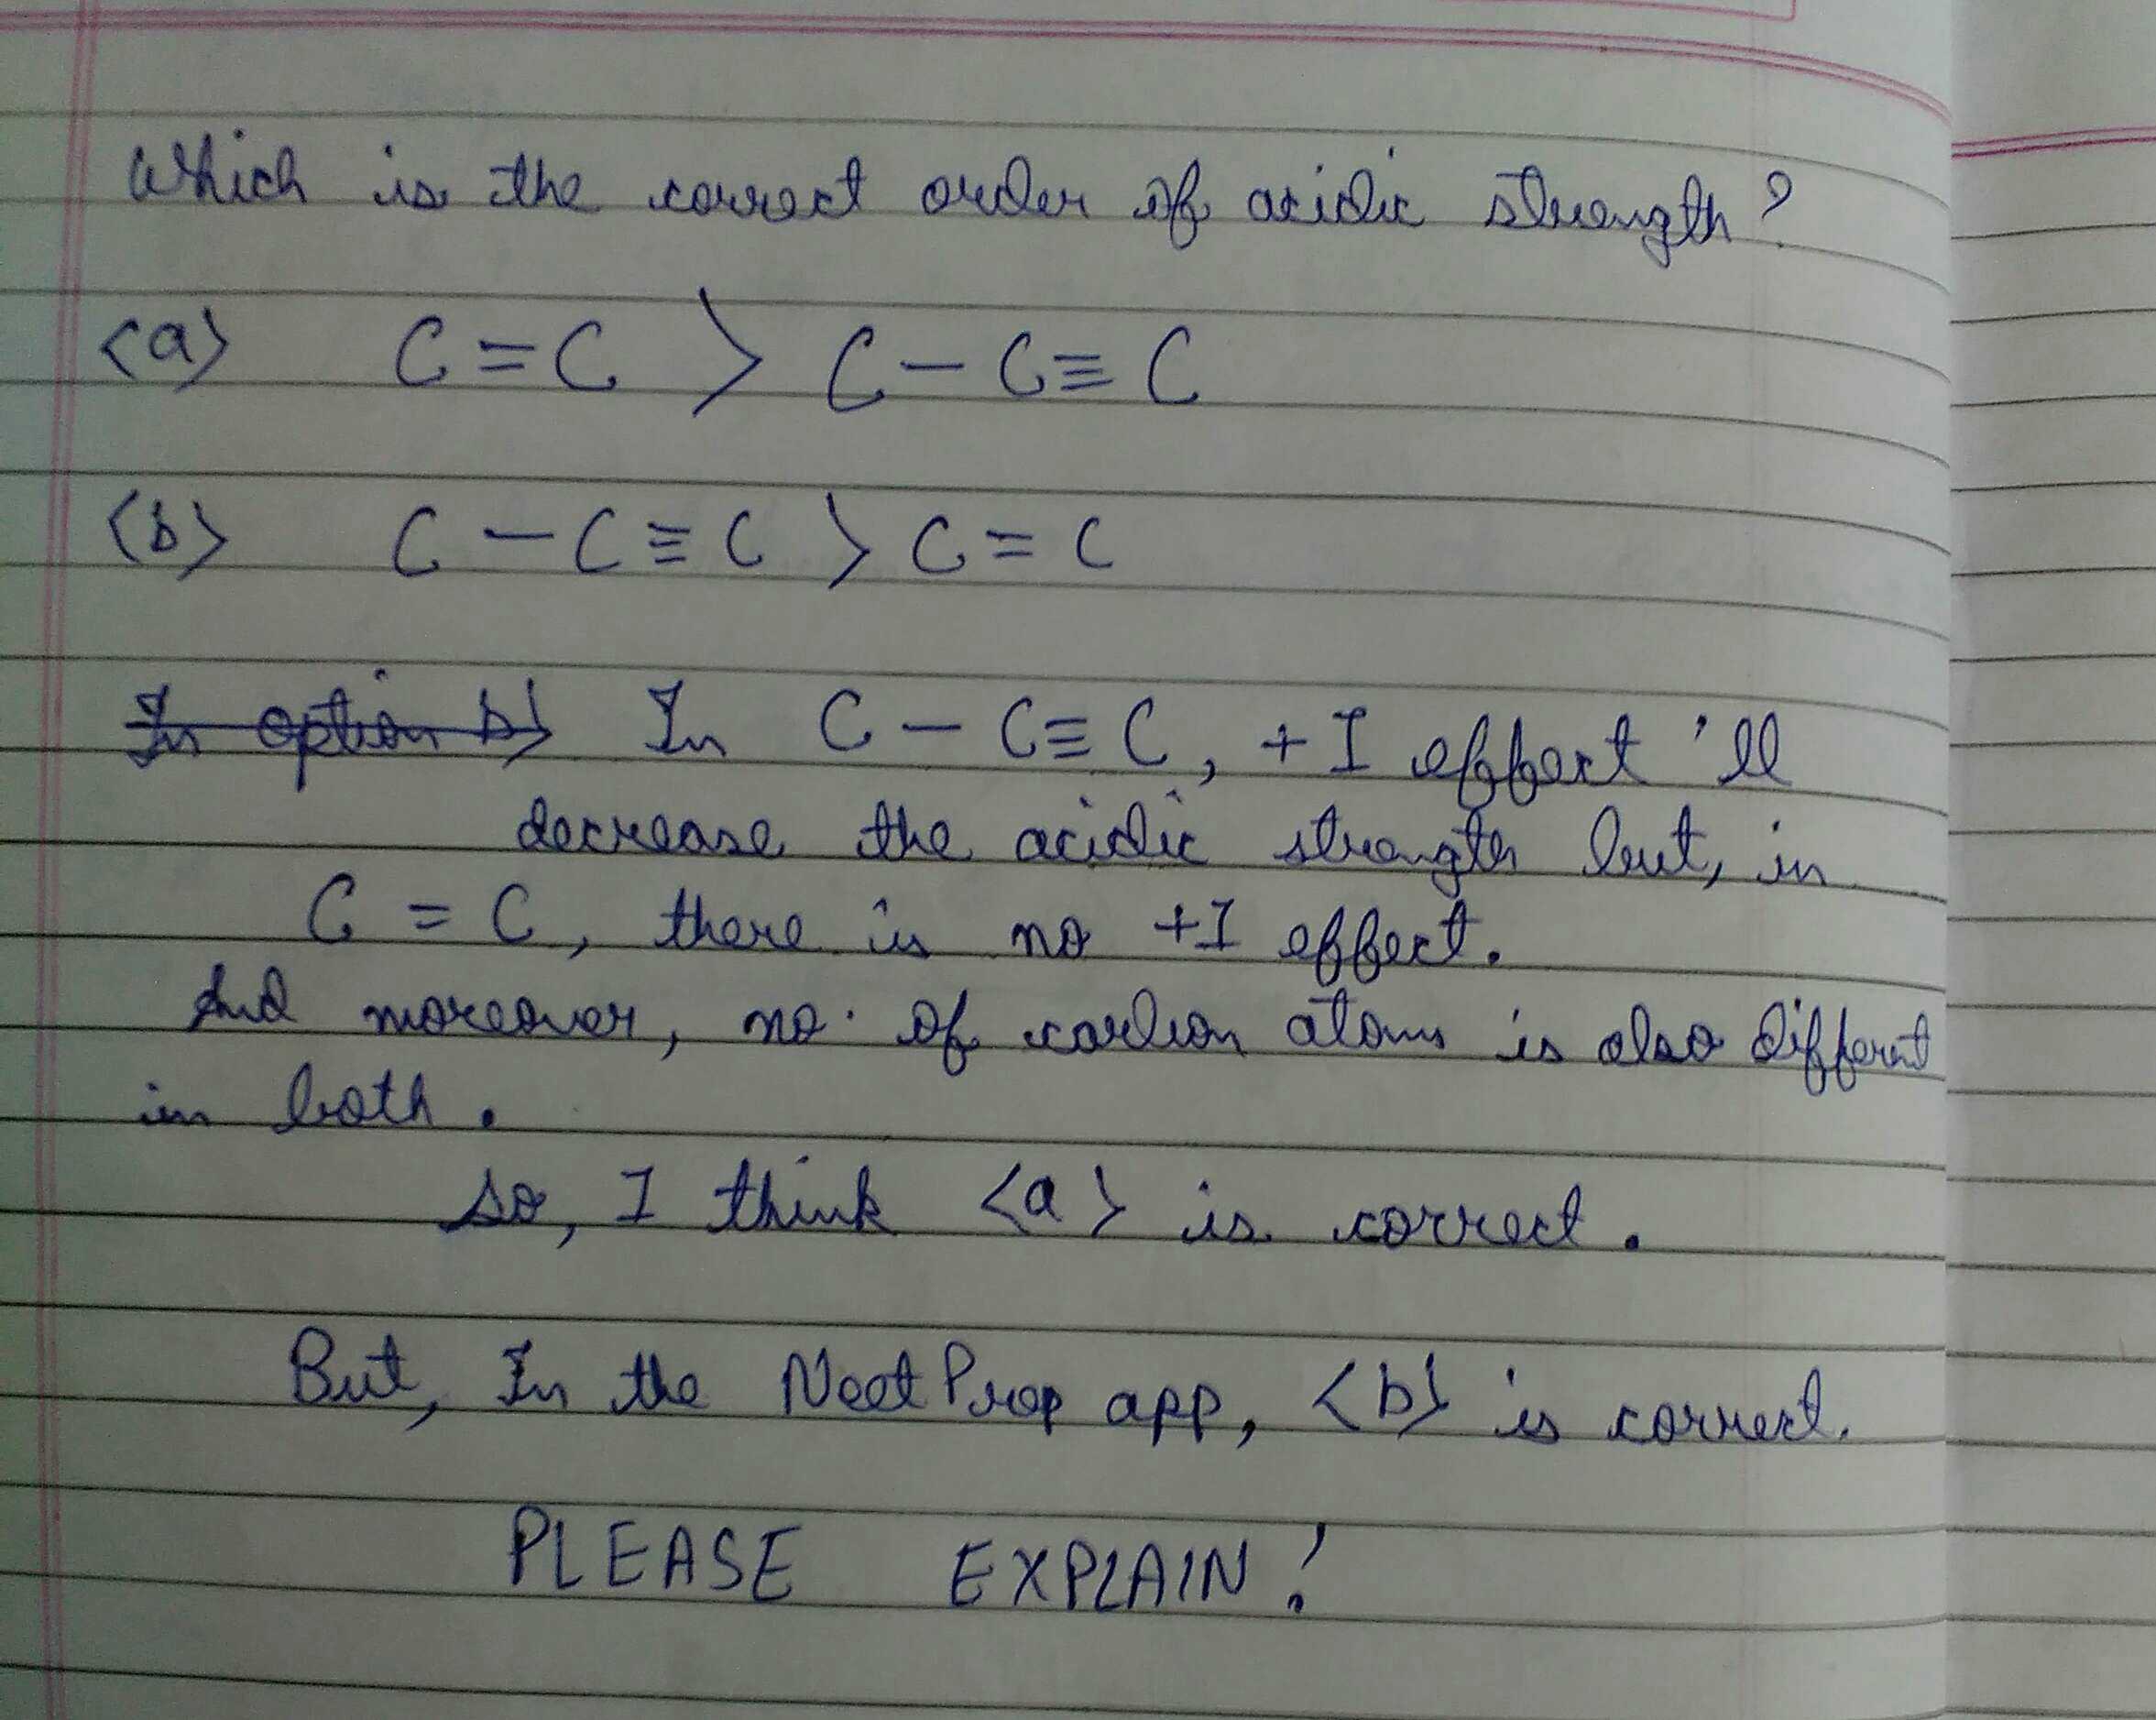 Which is the correct order of acidic strength?
<a> C = C > C - C ≡ C
<b> C - C ≡ C > C = C
In option b> In C - C ≡ C, + I effect 'll
decrease the acidic strength but, in
C = C, there is no +I effect.
And moreover, no. of carbon atoms is also different
in both.
So, I think <a> is correct.
But, In the Neet Prep app, <b> is correct.
PLEASE EXPLAIN!